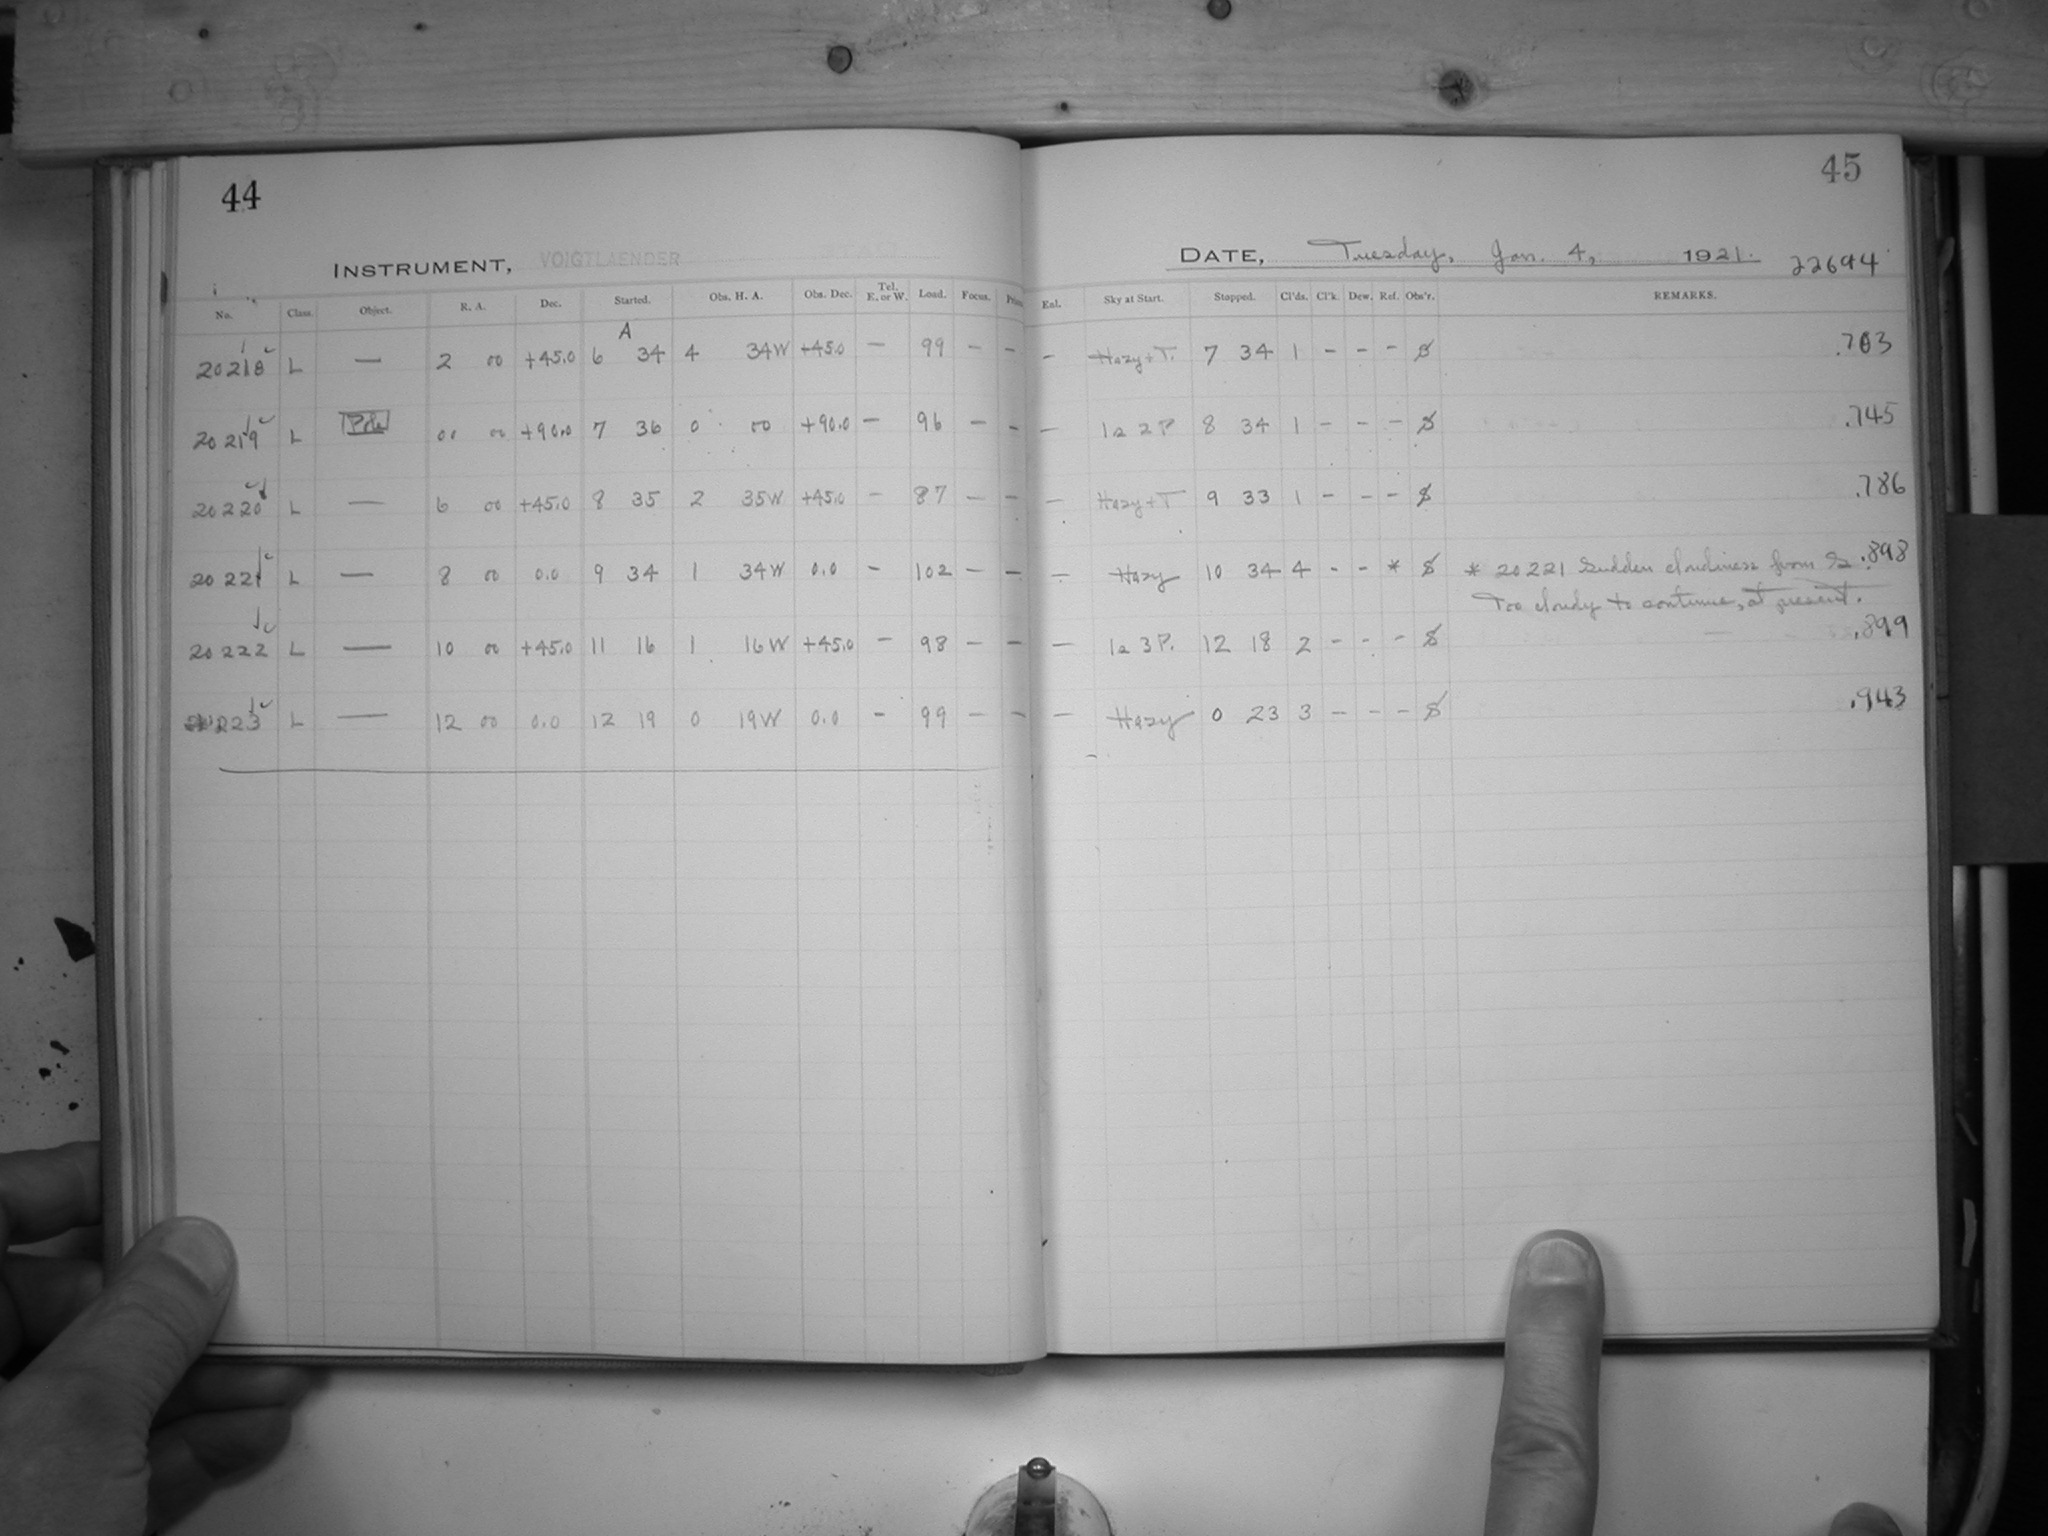 44
45
INSTRUMENT, VOIGTLAENDER
DATE, Tuesday, Jan. 4, 1921. 22694
No. Class. Object. R. A. Dec. Started. Obs. H. A. Obs. Dec. Tel. E. or W. Load. Focus. Enl. Sky at Start. Stopped. Cl'ds. Cl'k. Dew. Ref. Obs'r. REMARKS.
A
20218 L — 2 00 +45.0 6 34 4 34W +45.0 — 99 — — — Hazy+T. 7 34 1 - - -
20219 L Pole 00 00 +90.0 7 36 0 00 +90.0 — 96 — — — 1a 2P 8 34 1 - - - .745
20220 L — 6 00 +45.0 8 35 2 35W +45.0 — 87 — — — Hazy+T 9 33 1 - - - .786
20221 L — 8 00 0.0 9 34 1 34W 0.0 — 102 — — — Hazy 10 34 4 - - * * 20221 Sudden cloudiness from .898
Too cloudy to continue, at present.
20222 L — 10 00 +45.0 11 16 1 16W +45.0 — 98 — — — 1a 3P. 12 18 2 - - - .899
223 L — 12 00 0.0 12 19 0 19W 0.0 — 99 — — — Hazy 0 23 3 - - - .943